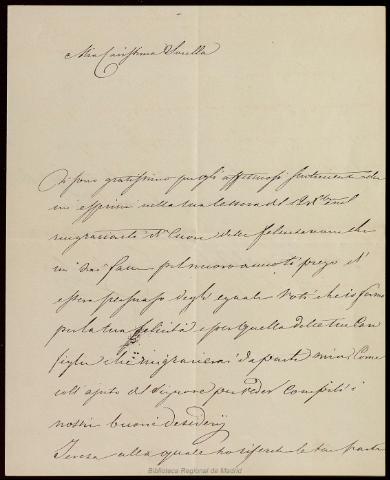 Mia Carissima Sorella
Ti sono gratissimo per gli affettuosi sentimenti che
mi esprimi nella tua lettera del
ringraziarti di cuore delle felicitazioni che
mi fai pel nuovo anno ti prego d'
essere persuasa degli eguali voti che io formo
per la tua felicità e per quella delle tue care
figlie che ringrazierai da parte mia. Come
coll' ajuto del Signore poter veder compiti i
nostri buoni desiderj
Teresa alla quale ho riferito la tua parte
Biblioteca Regional de Madrid